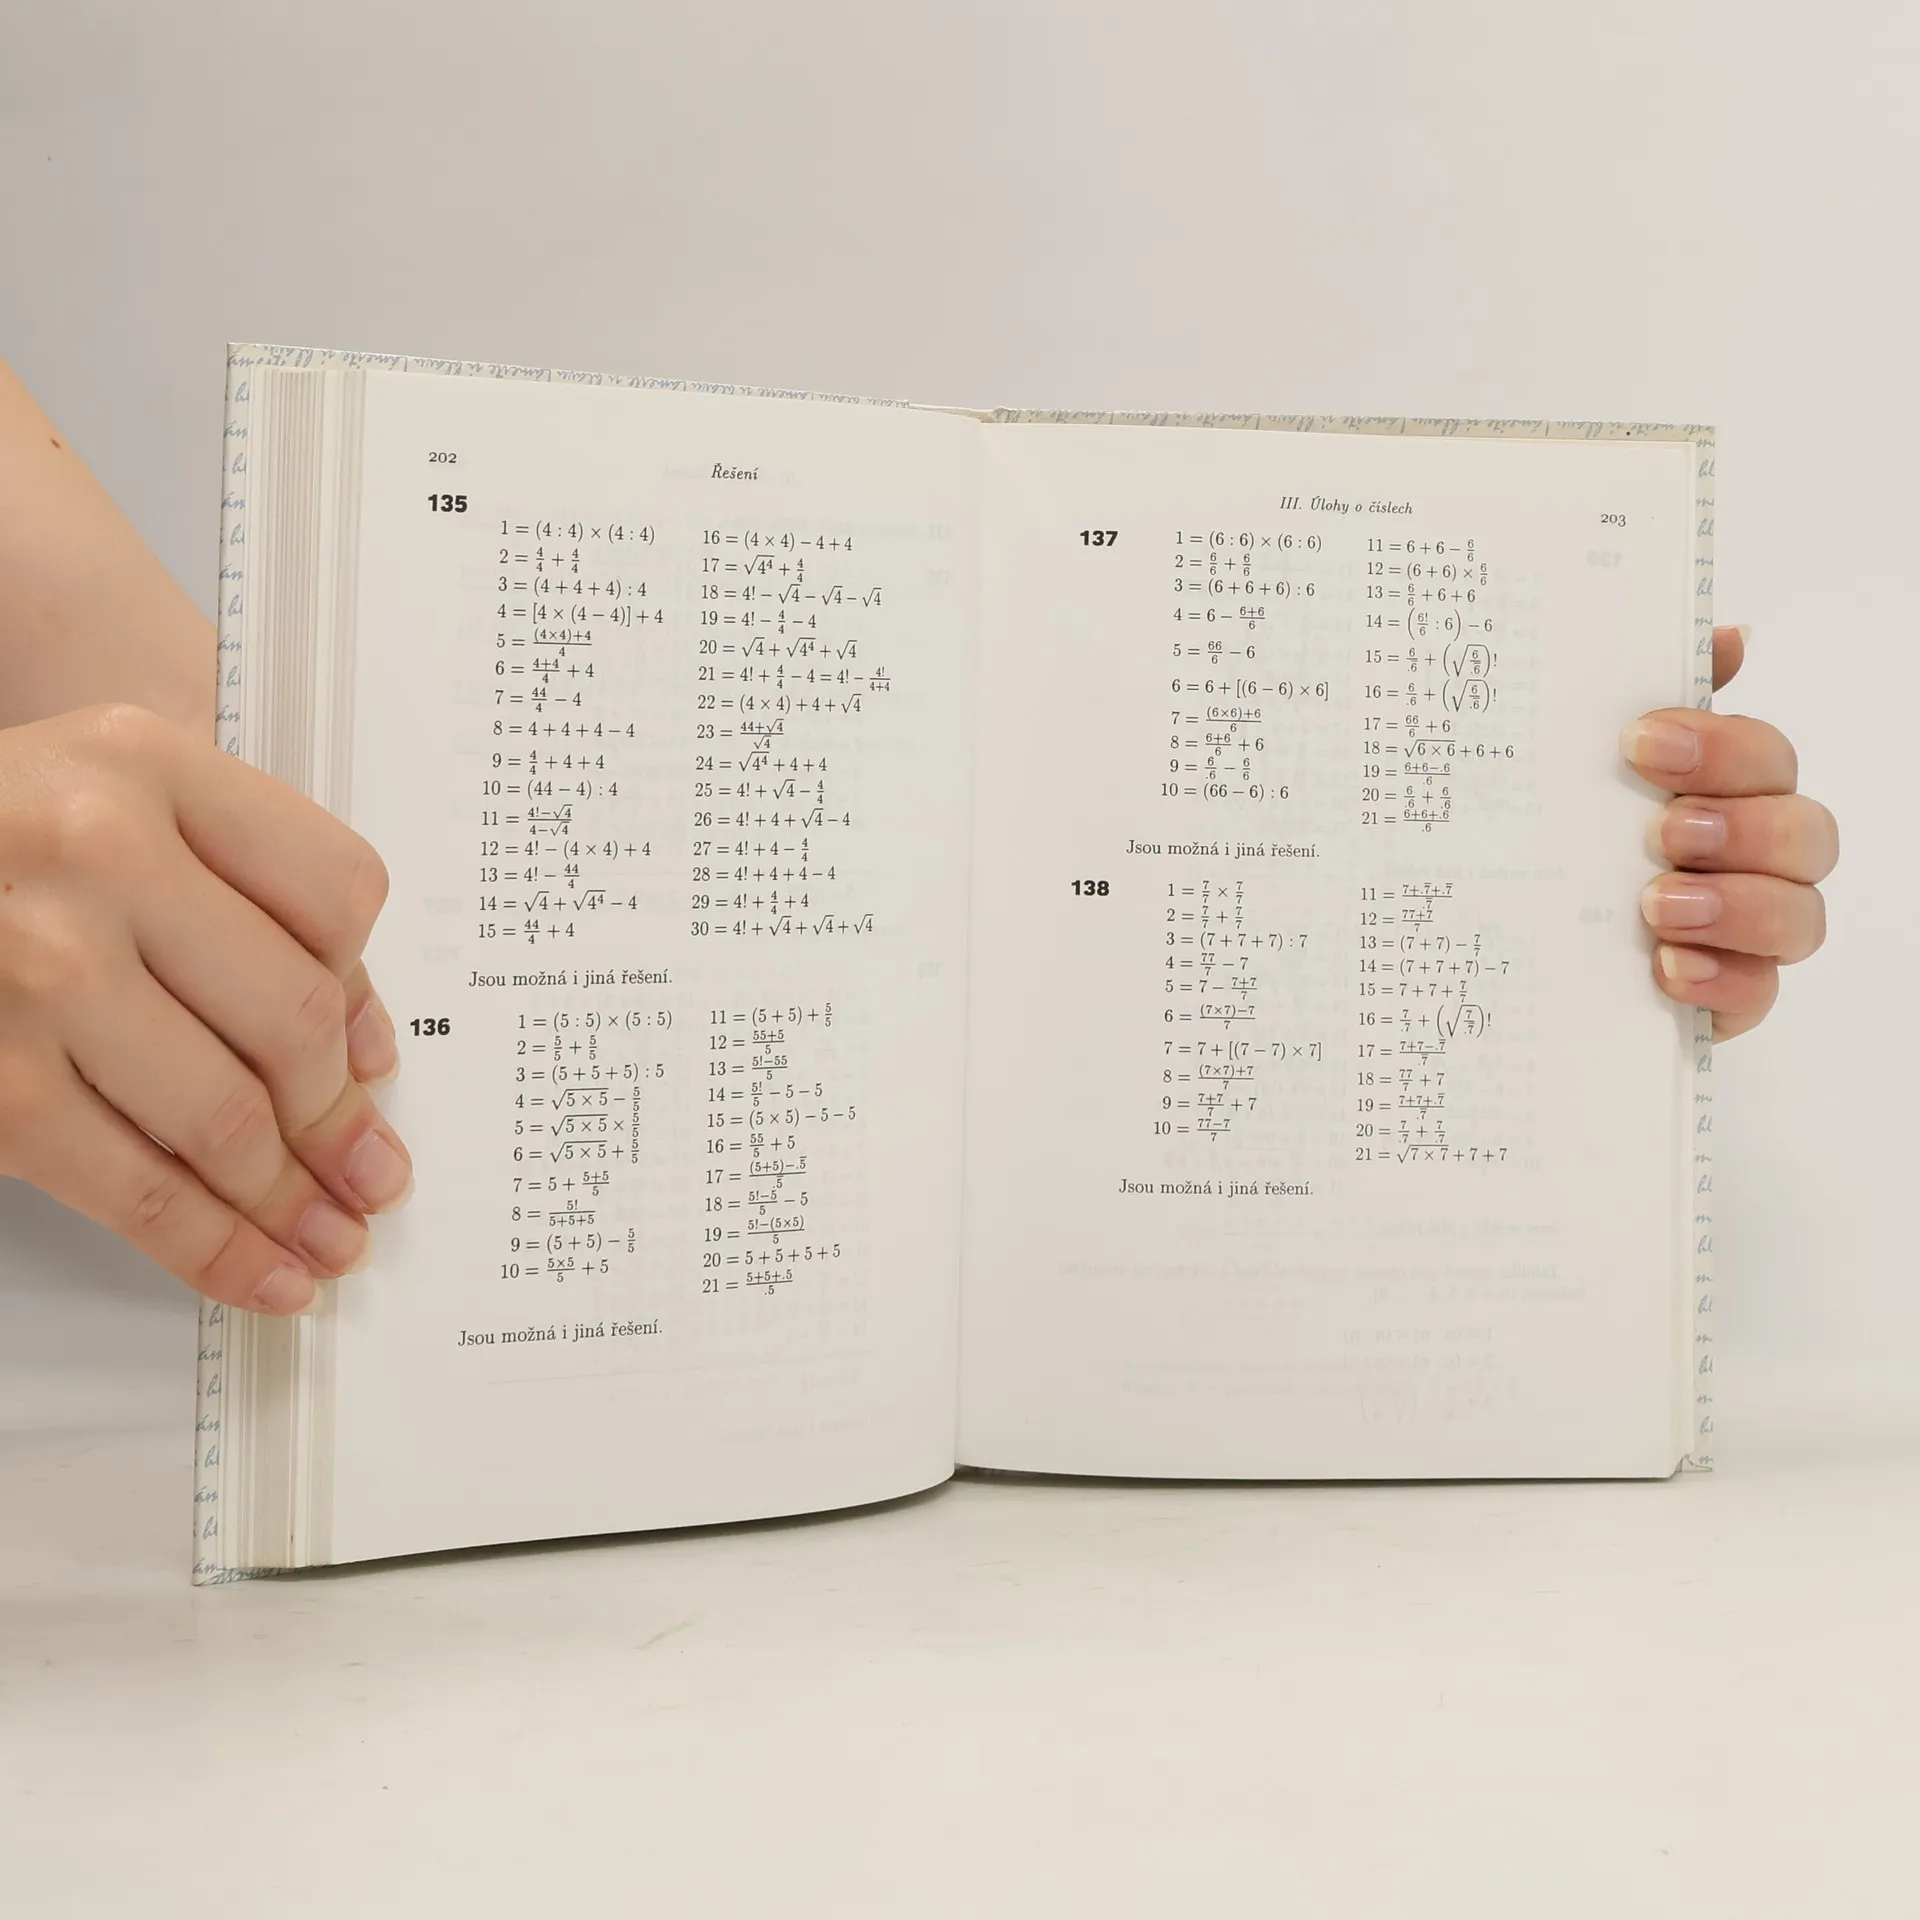 202
Řešení
135
1 = (4 : 4) × (4 : 4)
2 = 4/4 + 4/4
3 = (4 + 4 + 4) : 4
4 = [4 × (4 − 4)] + 4
5 = (4×4)+4/4
6 = 4+4/4 + 4
7 = 44/4 − 4
8 = 4 + 4 + 4 − 4
9 = 4/4 + 4 + 4
10 = (44 − 4) : 4
11 = 4!−√4/4−√4
12 = 4! − (4 × 4) + 4
13 = 4! − 44/4
14 = √4 + √4⁴ − 4
15 = 44/4 + 4
16 = (4 × 4) − 4 + 4
17 = √4⁴ + 4/4
18 = 4! − √4 − √4 − √4
19 = 4! − 4/4 − 4
20 = √4 + √4⁴ + √4
21 = 4! + 4/4 − 4 = 4! − 4!/4+4
22 = (4 × 4) + 4 + √4
23 = 44+√4/√4
24 = √4⁴ + 4 + 4
25 = 4! + √4 − 4/4
26 = 4! + 4 + √4 − 4
27 = 4! + 4 − 4/4
28 = 4! + 4 + 4 − 4
29 = 4! + 4/4 + 4
30 = 4! + √4 + √4 + √4
Jsou možná i jiná řešení.
136
1 = (5 : 5) × (5 : 5)
2 = 5/5 + 5/5
3 = (5 + 5 + 5) : 5
4 = √5 × 5 − 5/5
5 = √5 × 5 × 5/5
6 = √5 × 5 + 5/5
7 = 5 + 5+5/5
8 = 5!/5+5+5
9 = (5 + 5) − 5/5
10 = 5×5/5 + 5
11 = (5 + 5) + 5/5
12 = 55+5/5
13 = 5!−55/5
14 = 5!/5 − 5 − 5
15 = (5 × 5) − 5 − 5
16 = 55/5 + 5
17 = (5+5)−.5̅/.5̅
18 = 5!−5/5 − 5
19 = 5!−(5×5)/5
20 = 5 + 5 + 5 + 5
21 = 5+5+.5/.5
Jsou možná i jiná řešení.
III. Úlohy o číslech
203
137
1 = (6 : 6) × (6 : 6)
2 = 6/6 + 6/6
3 = (6 + 6 + 6) : 6
4 = 6 − 6+6/6
5 = 66/6 − 6
6 = 6 + [(6 − 6) × 6]
7 = (6×6)+6/6
8 = 6+6/6 + 6
9 = 6/.6 − 6/6
10 = (66 − 6) : 6
11 = 6 + 6 − 6/6
12 = (6 + 6) × 6/6
13 = 6/6 + 6 + 6
14 = (6!/6 : 6) − 6
17 = 66/6 + 6
18 = √6 × 6 + 6 + 6
19 = 6+6−.6/.6
20 = 6/.6 + 6/.6
21 = 6+6+.6/.6
Jsou možná i jiná řešení.
138
1 = 7/7 × 7/7
2 = 7/7 + 7/7
3 = (7 + 7 + 7) : 7
4 = 77/7 − 7
5 = 7 − 7+7/7
6 = (7×7)−7/7
7 = 7 + [(7 − 7) × 7]
8 = (7×7)+7/7
9 = 7+7/7 + 7
10 = 77−7/7
11 = 7+.7̅+.7̅/.7̅
12 = 77+7/7
13 = (7 + 7) − 7/7
14 = (7 + 7 + 7) − 7
15 = 7 + 7 + 7/7
16 = 7/.7 + (√7/.7̅)!
17 = 7+7−.7̅/.7̅
18 = 77/7 + 7
19 = 7+7+.7̅/.7̅
20 = 7/.7 + 7/.7
21 = √7 × 7 + 7 + 7
Jsou možná i jiná řešení.